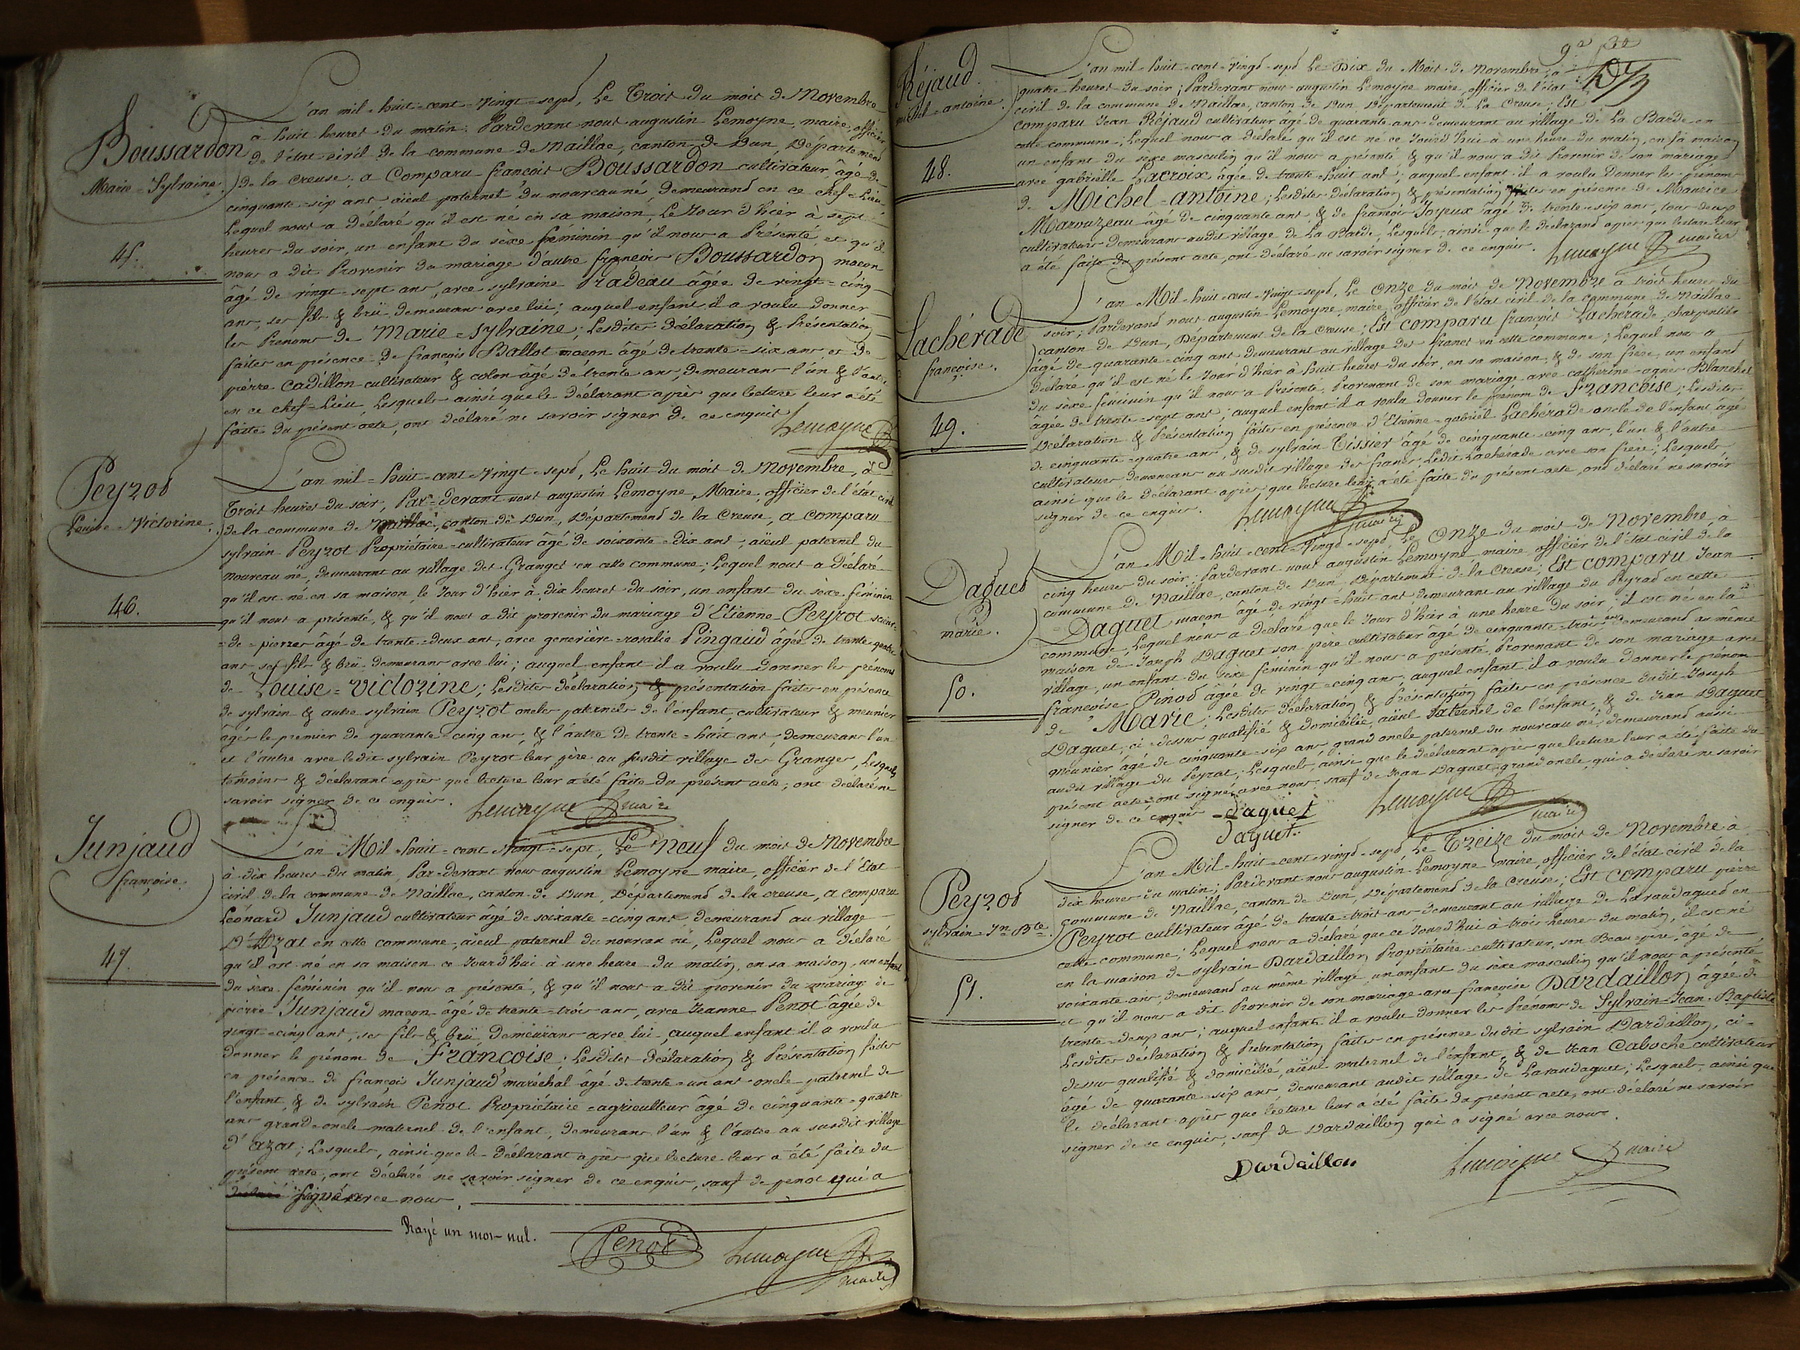 Boussardon
Marie-Sylvaine
45.
L'an mil-huit-cent-vingt-sept, Le Trois du mois de Novembre
à huit heures du matin. Pardevant nous augustin Lemoyne, maire, officier
de l'état civil de la commune de Naillac, canton de Dun, Département
de la Creuse, a comparu françois Boussardon cultivateur âgé de
cinquante-six ans, aïeul paternel du nouveau né, demeurant en ce chef-Lieu
Lequel nous a déclaré qu'il est né en sa maison, Le Jour d'hier à sept
heures du soir, un enfant du sèxe féminin qu'il nous a Présenté, et qu'il
nous a dit Provenir du mariage d'autre françois Boussardon maçon
âgé de vingt-sept ans, avec sylvaine Pradeau âgée de vingt-cinq
ans, ses fils & brü, demeurans avec lui; auquel enfant il a voulu donner
les Prénoms de Marie-Sylvaine; Lesdites déclaration & Présentation
faites en présence de françois Ballot maçon âgé de trente-six ans, et de
pierre Cadillon cultivateur & colon âgé de trente ans, demeurans l'un & l'autre
en ce chef-Lieu, Lesquels ainsi que le déclarant après que lecture leur a été
faite du présent acte, ont déclaré ne savoir signer de ce enquis
Lemoyne
Peyrot
Louise-Victorine.
46.
L'an mil-huit-cent-vingt-sept, Le huit du mois de Novembre, à
Trois heures du soir, Par-devant nous augustin Lemoyne Maire, officier de l'état civil
de la commune de Naillac, canton de Dun, Département de la Creuse, a comparu
sylvain Peyrot Propriétaire-cultivateur âgé de soixante-dix ans, aïeul paternel du
nouveau né, demeurant au village des Granges en cette commune; Lequel nous a déclaré
qu'il est né en sa maison, le Jour d'hier à dix heures du soir, un enfant du sèxe féminin
qu'il nous a présenté, & qu'il nous a dit provenir du mariage d'Etienne Peyrot
de-pierres âgé de trente-deux ans, avec geneviève-rosalie Pingaud âgée de trente-quatre
ans ses fils & brü demeurans avec lui; auquel enfant il a voulu donner les prénoms
de Louise-Victorine; Lesdites déclaration & présentation faites en présence
de sylvain & autre sylvain Peyrot oncles paternels de l'enfant, cultivateur & meunier
âgés le premier de quarante-cinq ans, & l'autre de trente-huit ans, demeurans l'un
et l'autre avec ledit sylvain Peyrot leur père au susdit village des Granges, Lesquels
témoins & déclarant après que lecture leur a été faite du présent acte, ont déclaré ne
savoir signer de ce enquis.
Lemoyne maire
Junjaud
françoise.
47.
L'an Mil-huit-cent-vingt-sept, Le Neuf du mois de Novembre
à dix heures du matin, Par-devant nous augustin Lemoyne maire, officier de l'Etat
civil de la commune de Naillac, canton de Dun, Département de la creuse, a comparu
Léonard Junjaud cultivateur âgé de soixante-cinq ans, demeurant au village
D'Azat en cette commune, aïeul paternel du nouveau né, Lequel nous a déclaré
qu'il est né en sa maison ce Jourd'hui à une heure du matin, en sa maison, un enfant
du sèxe féminin qu'il nous a présenté, & qu'il nous a dit provenir du mariage de
pierre Junjaud maçon âgé de trente-trois ans, avec Jeanne Penot âgée de
vingt-cinq ans, ses fils & brü, demeurans avec lui, auquel enfant il a voulu
donner le prénom de Françoise; Lesdites déclaration & Présentation faites
en présence de françois Junjaud maréchal âgé de trente-un ans oncle paternel de
l'enfant, & de sylvain Penot Propriétaire-agriculteur âgé de cinquante-quatre
ans grand-oncle maternel de l'enfant, demeurans l'un & l'autre au susdit village
d'azat; Lesquels, ainsi que le déclarant après que lecture leur a été faite du
présent acte, ont déclaré ne savoir signer de ce enquis, sauf de penot qui a
déclaré signé avec nous.
Rayé un mot nul.
Penot
Lemoyne maire
Réjaud
Michel-antoine.
48.
L'an mil-huit-cent-vingt-sept Le Dix du Mois de Novembre, à
quatre heures du soir, Pardevant nous augustin Lemoyne maire, officier de l'état
civil de la commune de Naillac, canton de Dun Département de La Creuse, Est
comparu Jean Réjaud cultivateur âgé de quarante ans demeurant au village de La Barde en
cette commune, Lequel nous a déclaré qu'il est né ce Jourd'hui à une heure du matin, en sa maison
un enfant du sexe masculin qu'il nous a présenté & qu'il nous a dit Provenir de son mariage
avec gabrielle Lacroix âgée de trente-huit ans, auquel enfant il a voulu donner les prénoms
de Michel-antoine; Lesdites déclaration & présentation faites en présence de Maurice
Marouzeau âgé de cinquante ans & de françois Joyeux âgé de trente-six ans, tous deux
cultivateurs demeurans audit village de La Barde, Lesquels, ainsi que le déclarant après que lecture leur
a été faite du présent acte, ont déclaré ne savoir signer de ce enquis.
Lemoyne maire
Lachérade
françoise.
49.
L'an Mil-huit-cent-vingt-sept, Le Onze du mois de Novembre à trois heures du
soir, Pardevant nous augustin Lemoyne, maire, officier de l'état civil de la commune de Naillac
canton de Dun, Département de la Creuse; Est comparu françois Lachérade charpentier
âgé de quarante-cinq ans demeurant au village des francs en cette commune; Lequel nous a
déclaré qu'il est né le Jour d'hier à huit heures du soir, en sa maison & de son frère, un enfant
du sèxe féminin qu'il nous a Présenté, Provenant de son mariage avec catherine-agnès Blanchet
âgée de trente-sept ans; auquel enfant il a voulu donner le prénom de Françoise; Lesdites
Déclaration & Présentation faites en présence d'Etienne-gabriel Lachérade oncle de l'enfant âgé
de cinquante-quatre ans, & de sylvain Tissier âgé de cinquante-cinq ans, l'un & l'autre
cultivateurs demeurans au susdit village des francs, Ledit Lachérade avec son frère; Lesquels
ainsi que le déclarant après que lecture leur a été faite du présent acte, ont déclaré ne savoir
signer de ce enquis.
Lemoyne maire
Daguet
marie.
50.
L'an Mil-huit-cent-vingt-sept, Le Onze du mois de Novembre, à
cinq heures du soir, Pardevant nous augustin Lemoyne maire officier de l'état civil de la
commune de Naillac, canton de Dun Département de la Creuse; Est comparu Jean
Daguet maçon âgé de vingt-huit ans demeurant au village du Peyrat en cette
commune, Lequel nous a déclaré que le Jour d'hier à une heure du soir, il est né en la
maison de Joseph Daguet son père cultivateur âgé de cinquante-trois ans demeurant au même
village, un enfant du sèxe féminin qu'il nous a présenté Provenant de son mariage avec
françoise Pinot âgée de vingt-cinq ans, auquel enfant il a voulu donner le prénom
de Marie; Lesdites déclaration & Présentation faites en présence dudit Joseph
Daguet, ci-dessus qualifié & domicilié, aïeul Paternel de l'enfant, & de Jean Daguet
meunier âgé de cinquante-six ans grand oncle paternel du nouveau né, demeurant aussi
audit village du Peyrat; Lesquels, ainsi que le déclarant après que lecture leur a été faite du
présent acte ont signé avec nous, sauf de Jean Daguet grand oncle qui a déclaré ne savoir
signer de ce enquis
Daguet
Daguet.
Lemoyne maire
Peyrot
sylvain-Jn-Bte.
51.
L'an Mil-huit-cent-vingt-sept, Le Treize du mois de Novembre à
dix heures du matin; Pardevant nous augustin Lemoyne maire, officier de l'état civil de la
commune de Naillac, canton de Dun, Département de la Creuse; Est comparu pierre
Peyrot cultivateur âgé de trente-trois ans demeurant au village de Lavaudaguet en
cette commune; Lequel nous a déclaré que ce Jourd'hui à trois heures du matin, il est né
en la maison de sylvain Dardaillon Propriétaire-cultivateur, son Beau-père, âgé de
soixante ans, demeurant au même village, un enfant du sèxe masculin qu'il nous a présenté
et qu'il nous a dit Provenir de son mariage avec françoise Dardaillon âgée de
trente-deux ans; auquel enfant il a voulu donner les Prénoms de Sylvain-Jean-Baptiste
Lesdites déclaration & Présentation faites en présence dudit sylvain Dardaillon, ci-
dessus qualifié & domicilié, aïeul maternel de l'enfant, & de Jean Caboche cultivateur
âgé de quarante-six ans demeurant audit village de Lavaudaguet; Lesquels ainsi que
le déclarant après que lecture leur a été faite du présent acte, ont déclaré ne savoir
signer de ce enquis, sauf de Dardaillon qui a signé avec nous.
Dardaillon
Lemoyne maire